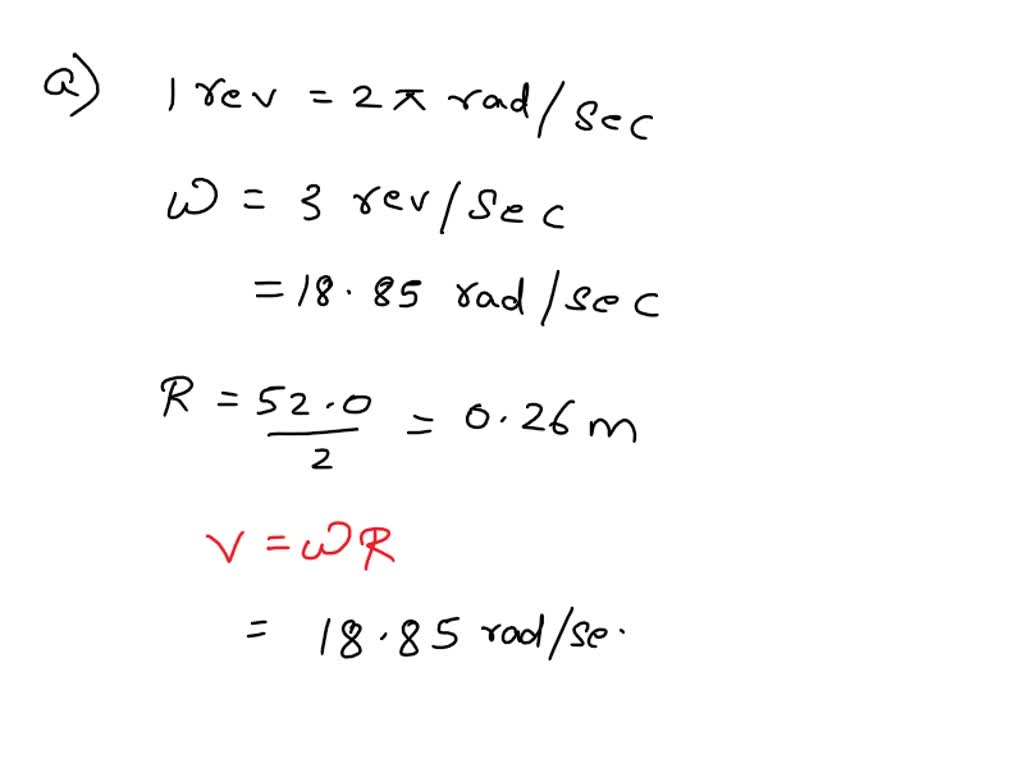 a) 1 rev = 2π rad/sec
ω = 3 rev/sec
= 18.85 rad/sec
R = 52.0/2 = 0.26 m
V = ωR
= 18.85 rad/se.